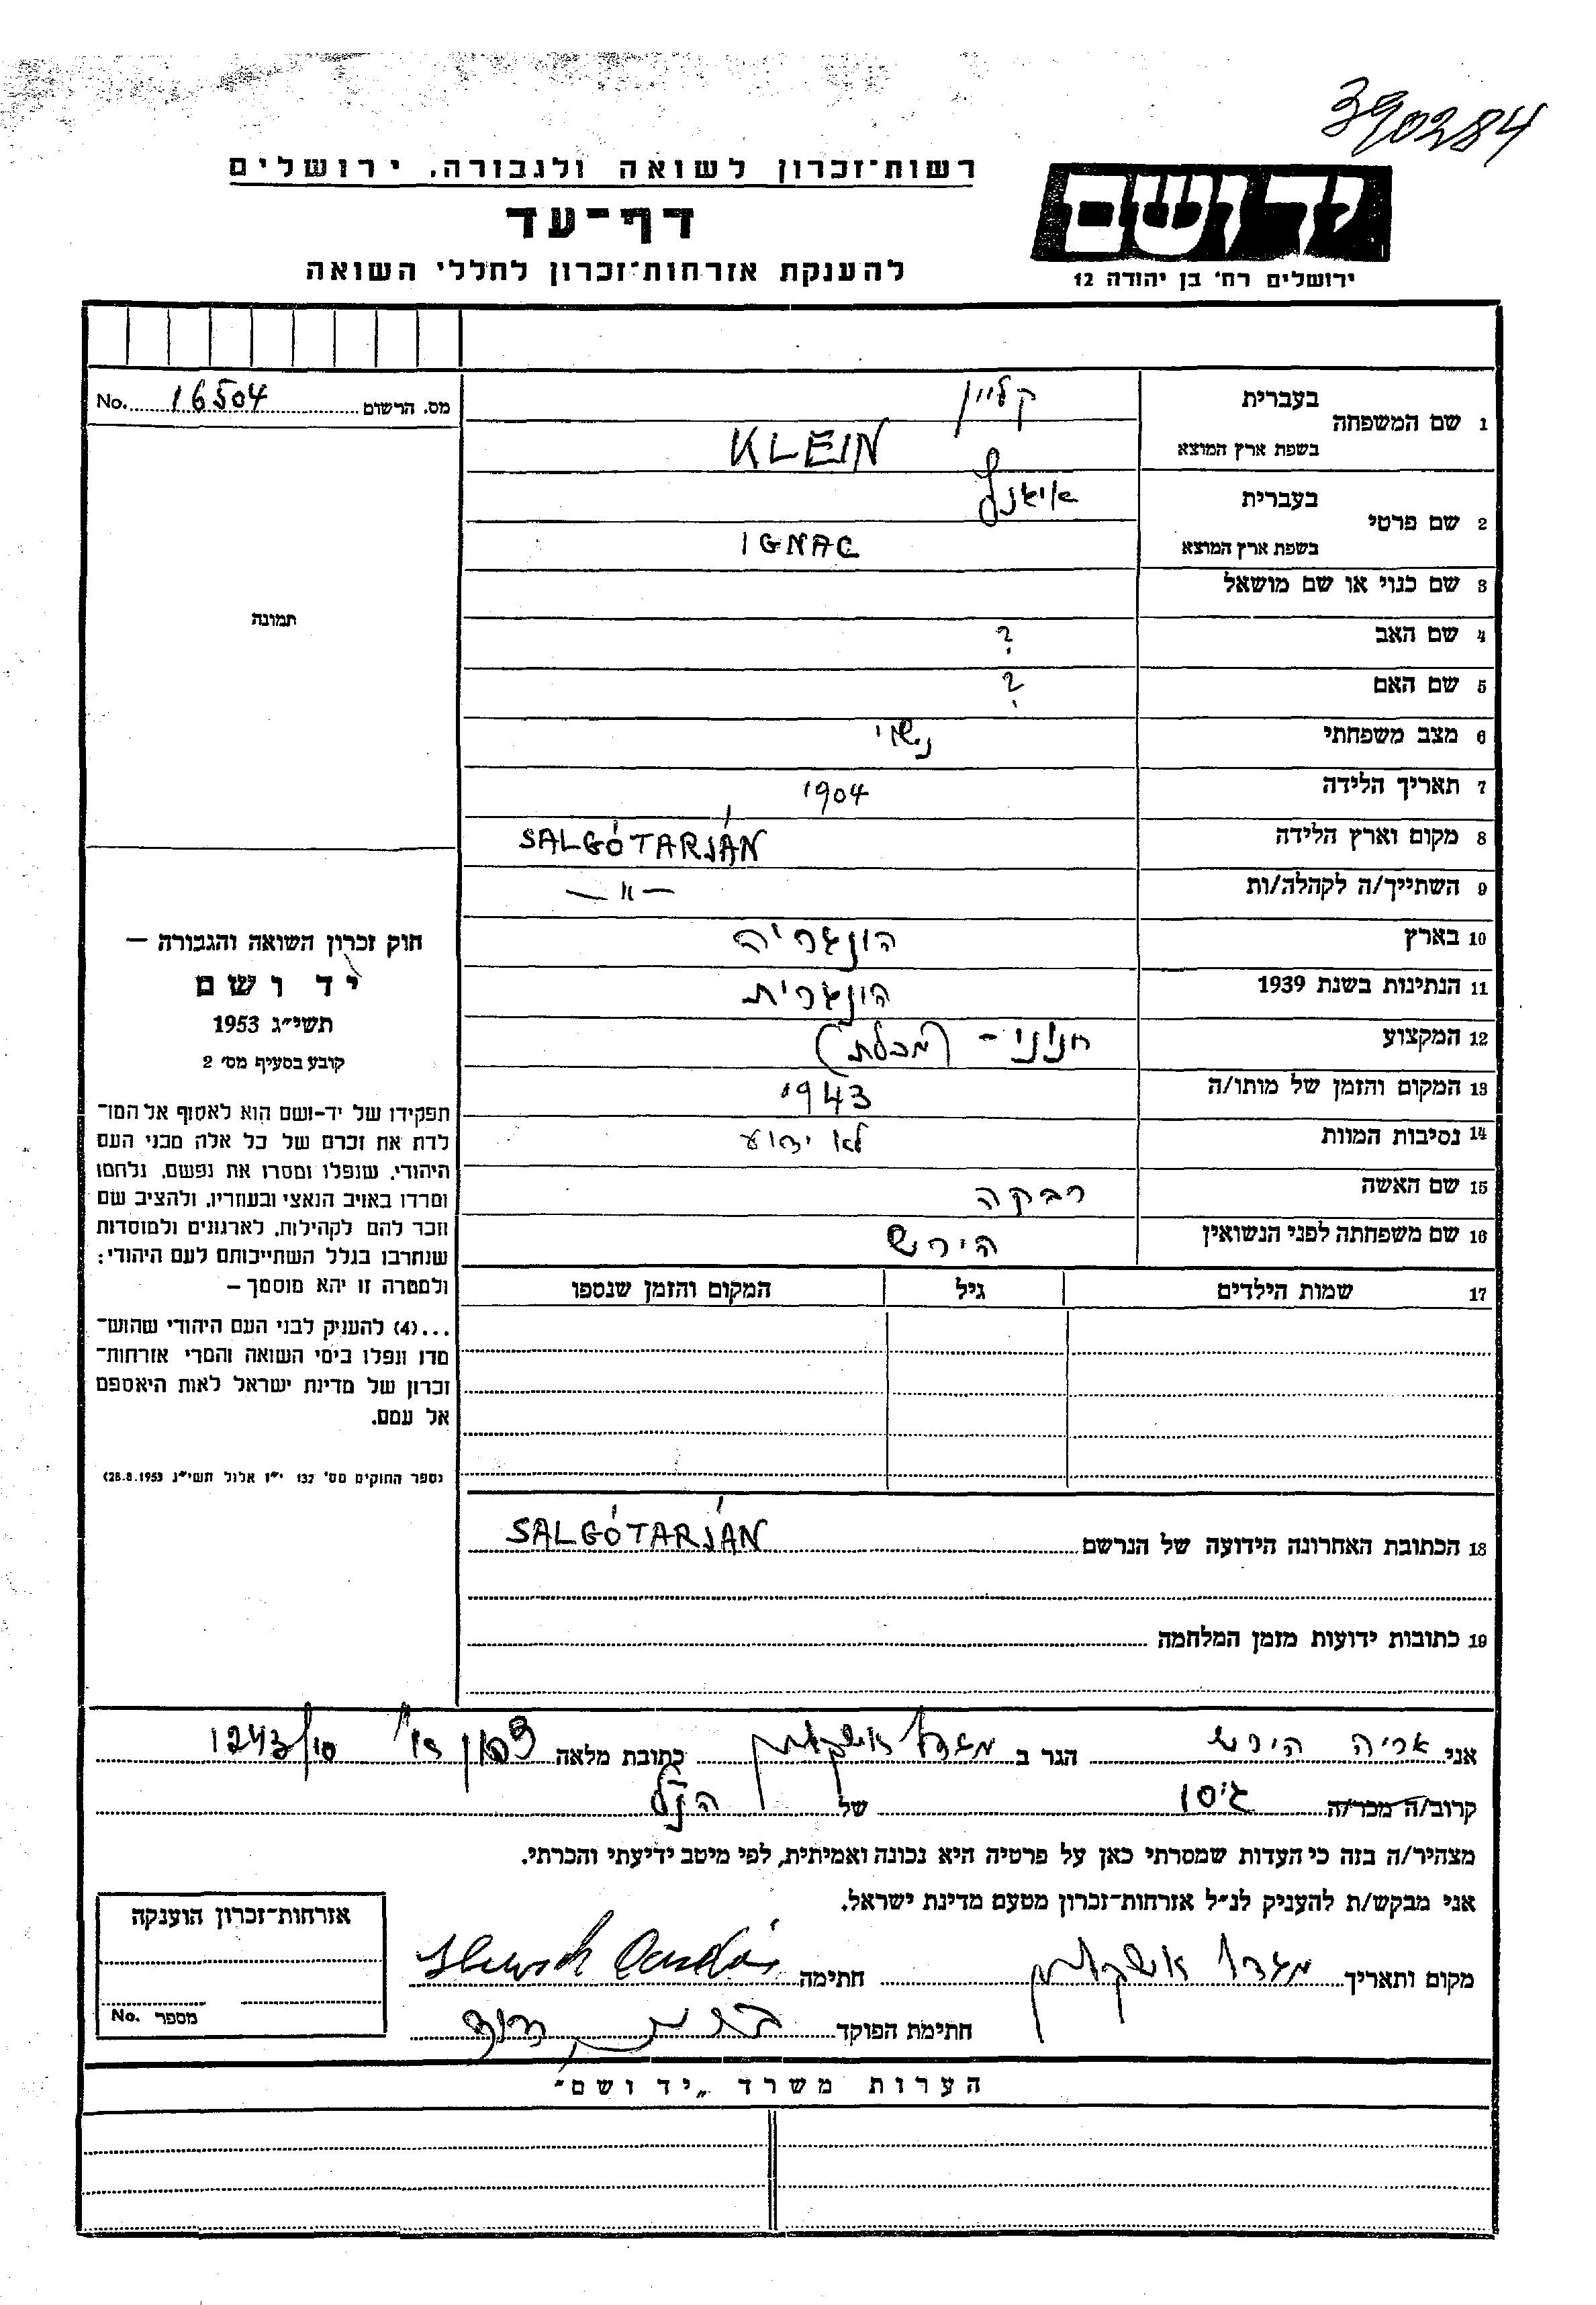 390284
רשות־זכרון לשואה ולגבורה, ירושלים
יד ושם
דף־עד
להענקת אזרחות־זכרון לחללי השואה
ירושלים רח' בן יהודה 12
מס. הרשום 16504 No.
1 שם המשפחה
בעברית קליין
בשפת ארץ המוצא KLEIN
2 שם פרטי
בעברית
בשפת ארץ המוצא IGNAC
3 שם כנוי או שם מושאל
4 שם האב ?
5 שם האם ?
6 מצב משפחתי נישאוי
7 תאריך הלידה 1904
8 מקום וארץ הלידה SALGÓTARJÁN
9 השתייך/ה לקהלה/ות —"—
10 בארץ הונגריה
11 הנתינות בשנת 1939 הונגרית
12 המקצוע חנוני - (מכלת)
13 המקום והזמן של מותו/ה 1943
14 נסיבות המוות לא ידוע
15 שם האשה רבקה
16 שם משפחתה לפני הנשואין הירש
17 שמות הילדים גיל המקום והזמן שנספו
תמונה
חוק זכרון השואה והגבורה —
יד ושם
תשי״ג 1953
קובע בסעיף מס' 2
תפקידו של יד-ושם הוא לאסוף אל המו־
לדת את זכרם של כל אלה מבני העם
היהודי, שנפלו ומסרו את נפשם, נלחמו
ומרדו באויב הנאצי ובעוזריו, ולהציב שם
וזכר להם לקהילות, לארגונים ולמוסדות
שנחרבו בגלל השתייכותם לעם היהודי;
ולמטרה זו יהא מוסמך —
...(4) להעניק לבני העם היהודי שהוש־
מדו ונפלו בימי השואה והמרי אזרחות־
זכרון של מדינת ישראל לאות היאספם
אל עמם.
(ספר החוקים מס' 132 י״ז אלול תשי״ג 28.8.1953)
18 הכתובת האחרונה הידועה של הנרשם SALGÓTARJÁN
19 כתובות ידועות מזמן המלחמה
אני אריה הירש הגר ב מגדל אשקלון כתובת מלאה 1243/10
קרוב/ה מכר/ה גיסו של הנ״ל
מצהיר/ה בזה כי העדות שמסרתי כאן על פרטיה היא נכונה ואמיתית, לפי מיטב ידיעתי והכרתי.
אני מבקש/ת להעניק לנ״ל אזרחות־זכרון מטעם מדינת ישראל.
מקום ותאריך מגדל אשקלון חתימה
חתימת הפוקד
אזרחות־זכרון הוענקה
מספר No.
הערות משרד „יד ושם"